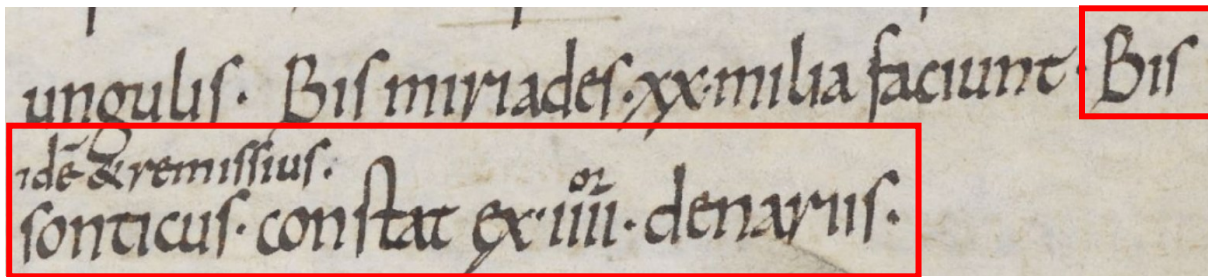 ungulis. Bis miriades. xx. milia faciunt. Bis
idē & remissius.
sonticus. constat ex. iiii.or denariis.